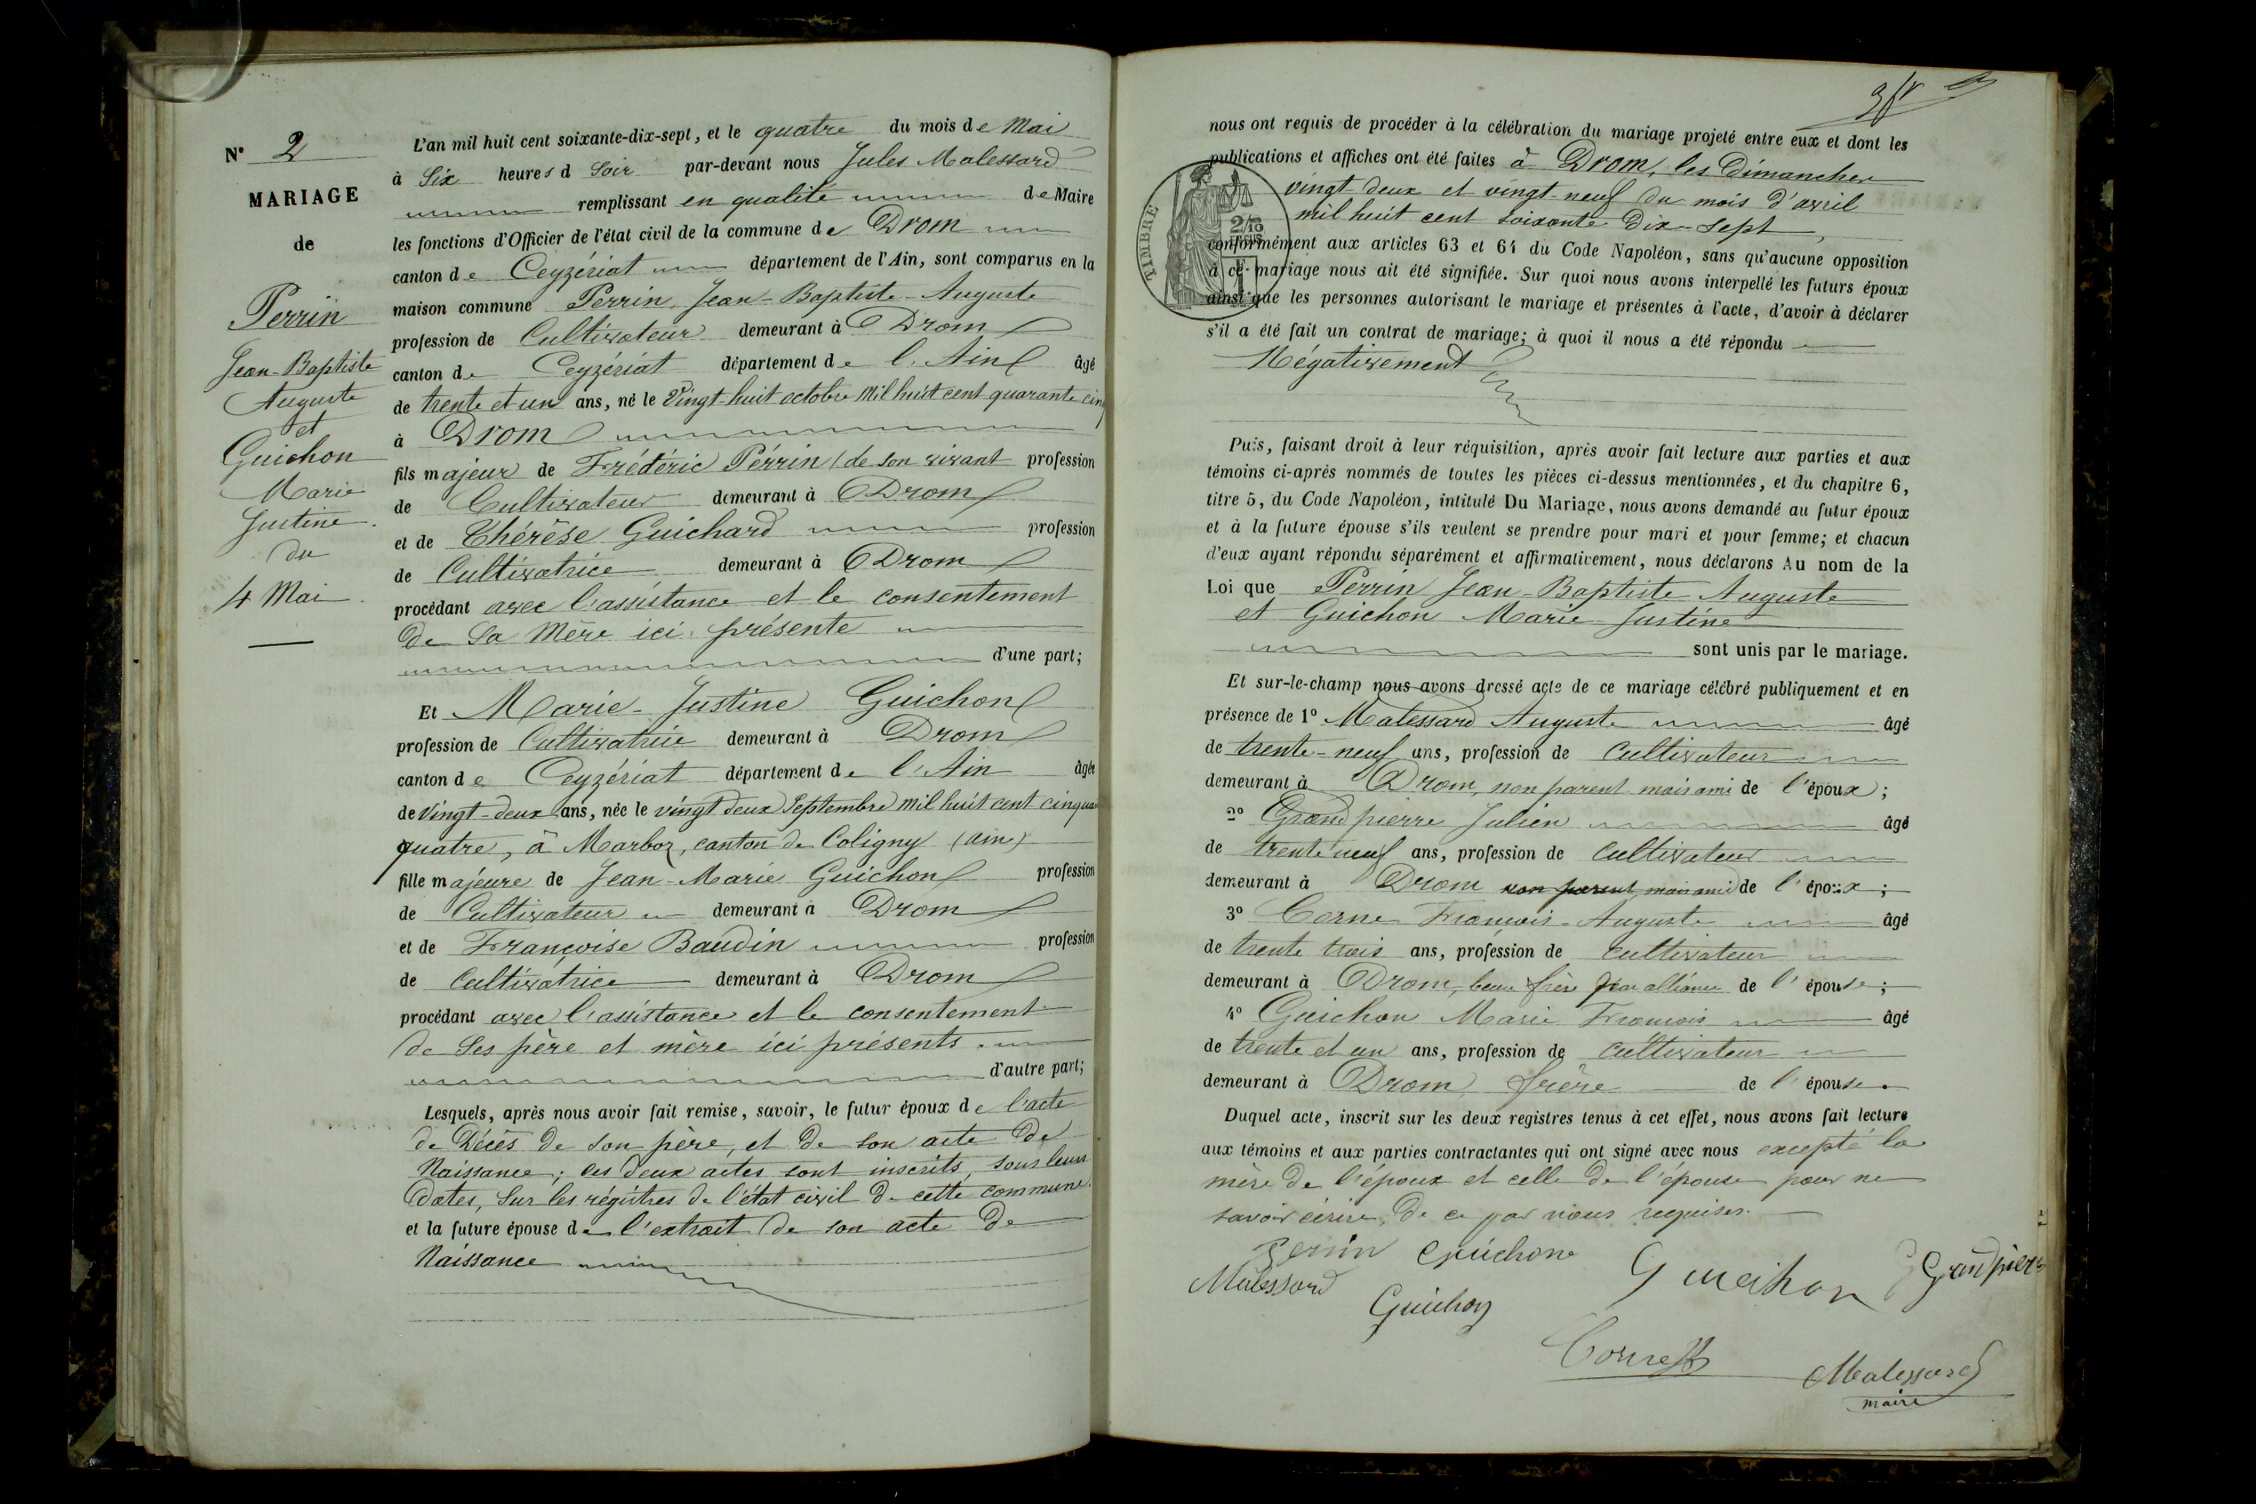 N° 2
MARIAGE
de
Perrin
Jean-Baptiste
Auguste
et
Guichon
Marie
Justine.
du
4 Mai
L'an mil huit cent soixante-dix-sept, et le quatre du mois de Mai
à Six heures d Soir par-devant nous Jules Malessard
remplissant en qualité de Maire
les fonctions d'Officier de l'état civil de la commune de Drom
canton de Ceyzériat département de l'Ain, sont comparus en la
maison commune Perrin Jean-Baptiste-Auguste
profession de Cultivateur demeurant à Drom
canton de Ceyzériat département de l'Ain âgé
de trente et un ans, né le Vingt-huit octobre Mil huit cent quarante cinq
à Drom
fils majeur de Frédéric Pérrin (de son vivant profession
de Cultivateur demeurant à Drom
et de Thérèse Guichard profession
de Cultivatrice demeurant à Drom
procédant avec l'assistance et le consentement
de Sa Mère ici présente
d'une part;
Et Marie-Justine Guichon
profession de Cultivatrice demeurant à Drom
canton de Ceyzériat département de l'Ain âgée
de Vingt-deux ans, née le vingt deux Septembre mil huit cent cinquan
quatre, à Marboz, canton de Coligny (ain)
fille majeure de Jean-Marie Guichon profession
de Cultivateur demeurant à Drom
et de Françoise Baudin profession
de Cultivatrice demeurant à Drom
procédant avec l'assistance et le consentement
de Ses père et mère ici présents.
d'autre part;
Lesquels, après nous avoir fait remise, savoir, le futur époux de l'acte
de Décès de son père, et de son acte de
Naissance; ces deux actes sont inscrits, sous leurs
dates, Sur les régistres de l'état civil de cette commune.
et la future épouse de l'extrait de son acte de
Naissance
nous ont requis de procéder à la célébration du mariage projeté entre eux et dont les
publications et affiches ont été faites à Drom, les Dimanches
vingt deux et vingt-neuf du mois d'avril
mil huit cent soixante Dix-Sept,
TIMBRE
conformément aux articles 63 et 64 du Code Napoléon, sans qu'aucune opposition
à ce mariage nous ait été signifiée. Sur quoi nous avons interpellé les futurs époux
ainsi que les personnes autorisant le mariage et présentes à l'acte, d'avoir à déclarer
s'il a été fait un contrat de mariage; à quoi il nous a été répondu
Négativement
Puis, faisant droit à leur réquisition, après avoir fait lecture aux parties et aux
témoins ci-après nommés de toutes les pièces ci-dessus mentionnées, et du chapitre 6,
titre 5, du Code Napoléon, intitulé Du Mariage, nous avons demandé au futur époux
et à la future épouse s'ils veulent se prendre pour mari et pour femme; et chacun
d'eux ayant répondu séparément et affirmativement, nous déclarons Au nom de la
Loi que Perrin Jean-Baptiste Auguste
et Guichon Marie Justine
sont unis par le mariage.
Et sur-le-champ nous avons dressé acte de ce mariage célébré publiquement et en
présence de 1° Malessard Auguste âgé
de trente-neuf ans, profession de cultivateur
demeurant à Drom, non parent mais ami de l'époux;
2° Grandpierre Julien âgé
de trente neuf ans, profession de cultivateur
demeurant à Drom non parent mais ami de l'époux;
3° Corne François-Auguste âgé
de trente trois ans, profession de cultivateur
demeurant à Drom, beau frère par alliance de l'épouse;
4° Guichon Marie François âgé
de trente et un ans, profession de cultivateur
demeurant à Drom, frère de l'épouse.
Duquel acte, inscrit sur les deux registres tenus à cet effet, nous avons fait lecture
aux témoins et aux parties contractantes qui ont signé avec nous excepté la
mère de l'époux et celle de l'épouse pour ne
savoir écrire, de ce par nous requises.
Perrin Guichon Guichon Grandpierre
Malessard Guichon
Corne
Malessard
maire